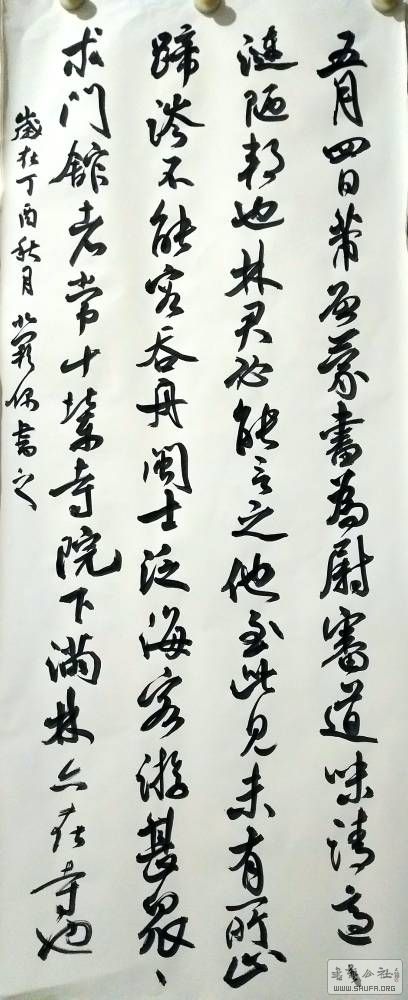 五月四日芾啓蒙書為尉審道味清適
漣陋邦也林君必能言之他至此見未有所止
蹄涔不能容吞舟閩士泛海客游甚衆、
求門館者常十輩寺院下滿林亦在寺也
歲在丁酉秋月 書之
書法公社
WWW.SHUFA.ORG